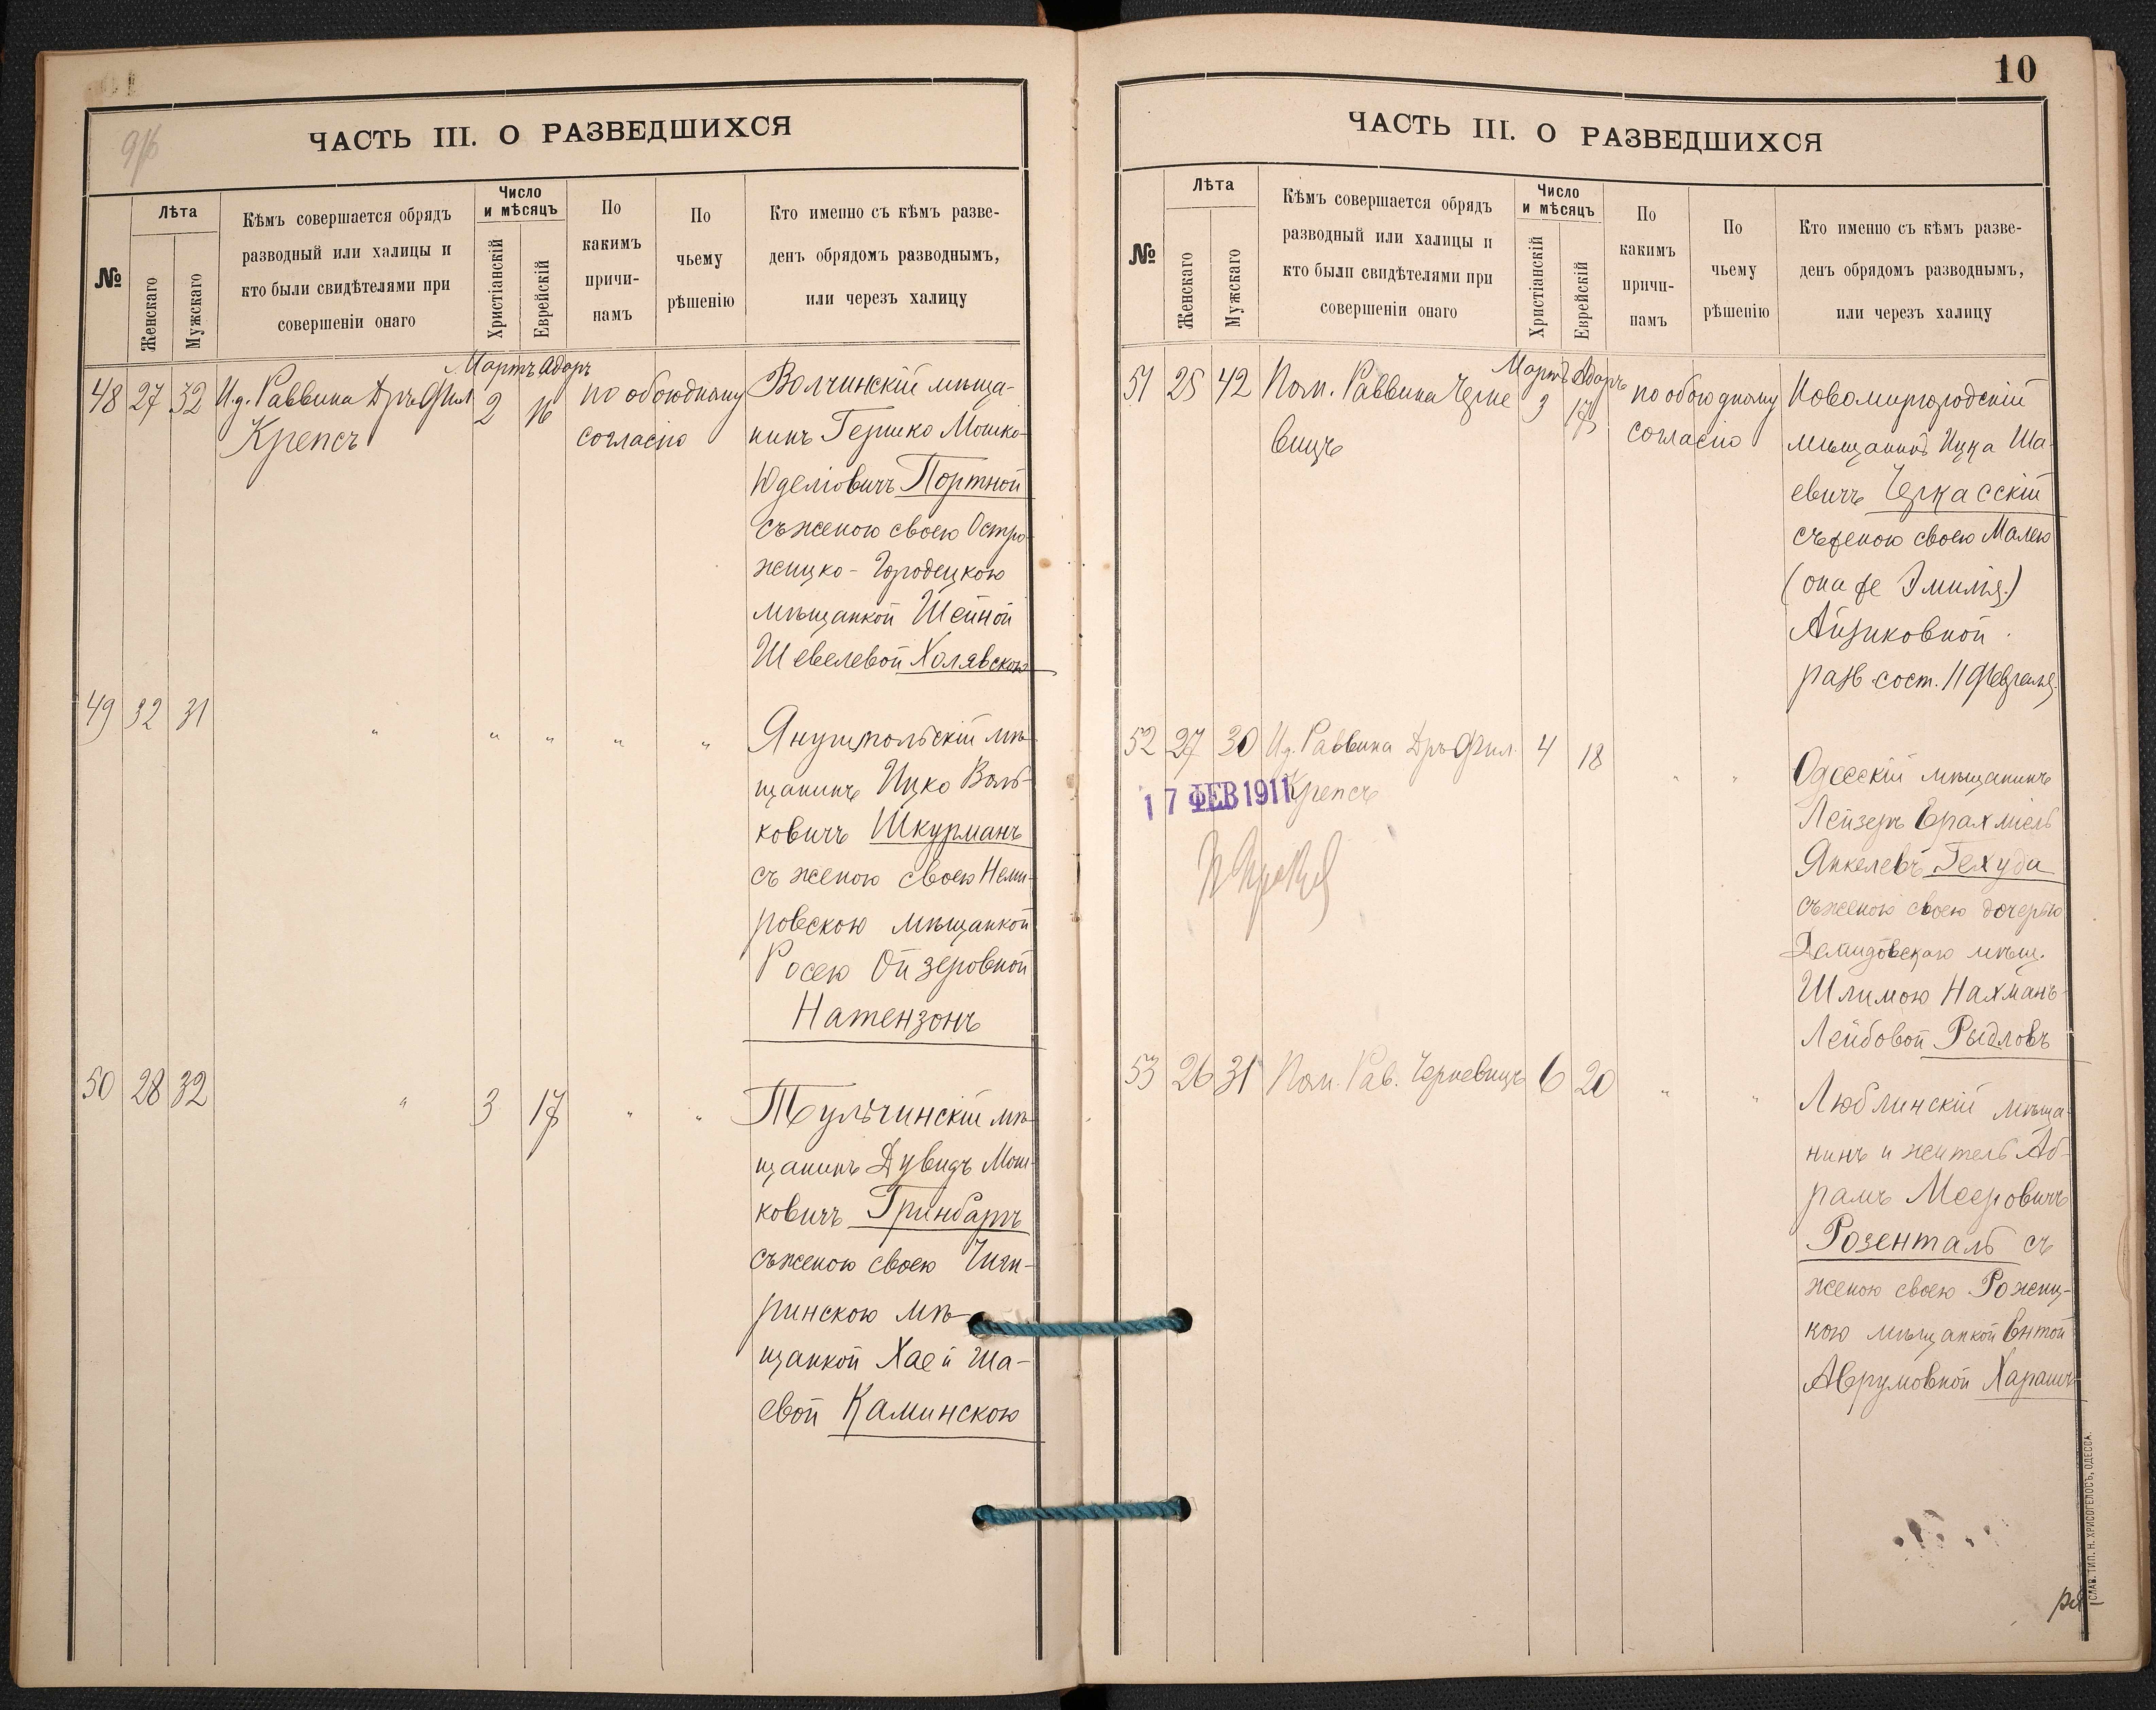 9/б
ЧАСТЬ III. О РАЗВЕДШИХСЯ
№
Лѣта
Женскаго
Мужскаго
Кѣмъ совершается обрядъ
разводный или халицы и
кто были свидѣтелями при
совершеніи онаго
Число
и мѣсяцъ
Христіанскій
Еврейскій
По
какимъ
причи-
намъ
По
чьему
рѣшенію
Кто именно съ кѣмъ разве-
денъ обрядомъ разводнымъ,
или черезъ халицу
Мартъ Адаръ
48 27 32 И.д. Раввина Дръ Фил 2 16 по обоюдному
Крепсъ согласію
Волчинскій мѣща-
нинъ Гершко Мошко-
Юделіовичъ Портной
съ женою своею Остро-
жицко-Городецкою
мѣщанкой Шейной
Шевелевой Холявскою
49 32 31 " " " " "
Янушпольскій мѣ-
щанинъ Ицко Воль-
ковичъ Шкурманъ
съ женою своею Неми-
ровскою мѣщанкой
Росею Ойзеровной
Натензонъ
50 28 32 " 3 17 " "
Тульчинскій мѣ-
щанинъ Дувидъ Мош-
ковичъ Гринбаръ
съ женою своею Чиги-
ринскою мѣ-
щанкой Хаей Ша-
евой Каминскою
10
ЧАСТЬ III. О РАЗВЕДШИХСЯ
№
Лѣта
Женскаго
Мужскаго
Кѣмъ совершается обрядъ
разводный или халицы и
кто были свидѣтелями при
совершеніи онаго
Число
и мѣсяцъ
Христіанскій
Еврейскій
По
какимъ
причи-
намъ
По
чьему
рѣшенію
Кто именно съ кѣмъ разве-
денъ обрядомъ разводнымъ,
или черезъ халицу
Мартъ Адаръ
51 25 42 Пом. Раввина Черне 3 17 по обоюдному
вицъ согласію
Новомиргородскій
мѣщанинъ Ицка Ша-
евичъ Черкасскій
съ женою своею Малею
(она же Эмилія)
Айзиковной
разв. сост. 11 Февраля
52 27 30 И.д. Раввина Дръ Фил. 4 18 " "
Крепсъ
17 ФЕВ 1911
Одесскій мѣщанинъ
Лейзеръ Ерахміель
Янкелевъ Гехуда
съ женою своею дочерью
Демидовскаго мѣщ.
Шлимою Нахманъ-
Лейбовой Рыдловъ
53 26 31 Пом. Рав. Черневицъ 6 20 " "
Люблинскій мѣща-
нинъ и житель Аб-
рамъ Мееровичъ
Розенталь съ
женою своею Рожиц-
кою мѣщанкой Ентой
Аврумовной Харашъ
СЛАВ. ТИП. Н. ХРИСОГЕЛОСЪ, ОДЕССА.